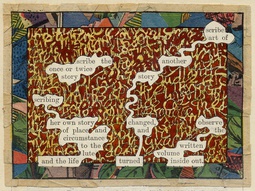 scribe
art of
scribe the
another
once or twice
story
story
scribing
her own story
of place and
circumstance
to the
lute
and the life
changed,
and
turned
observe
the
written
volume
inside out.